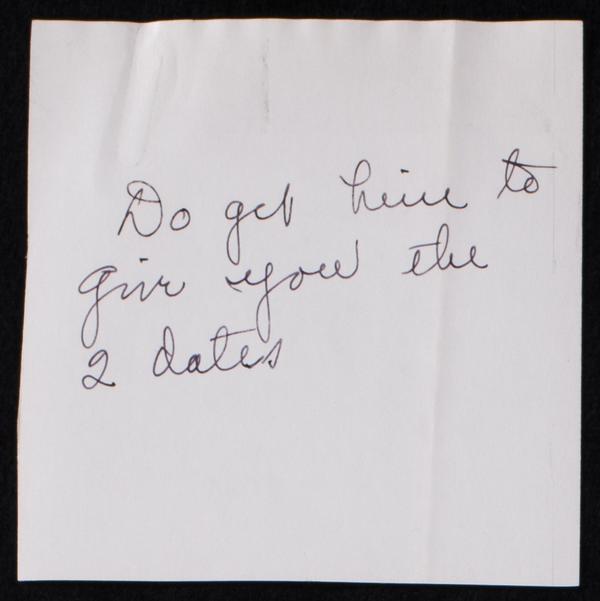 Do get him to
give you the
2 dates